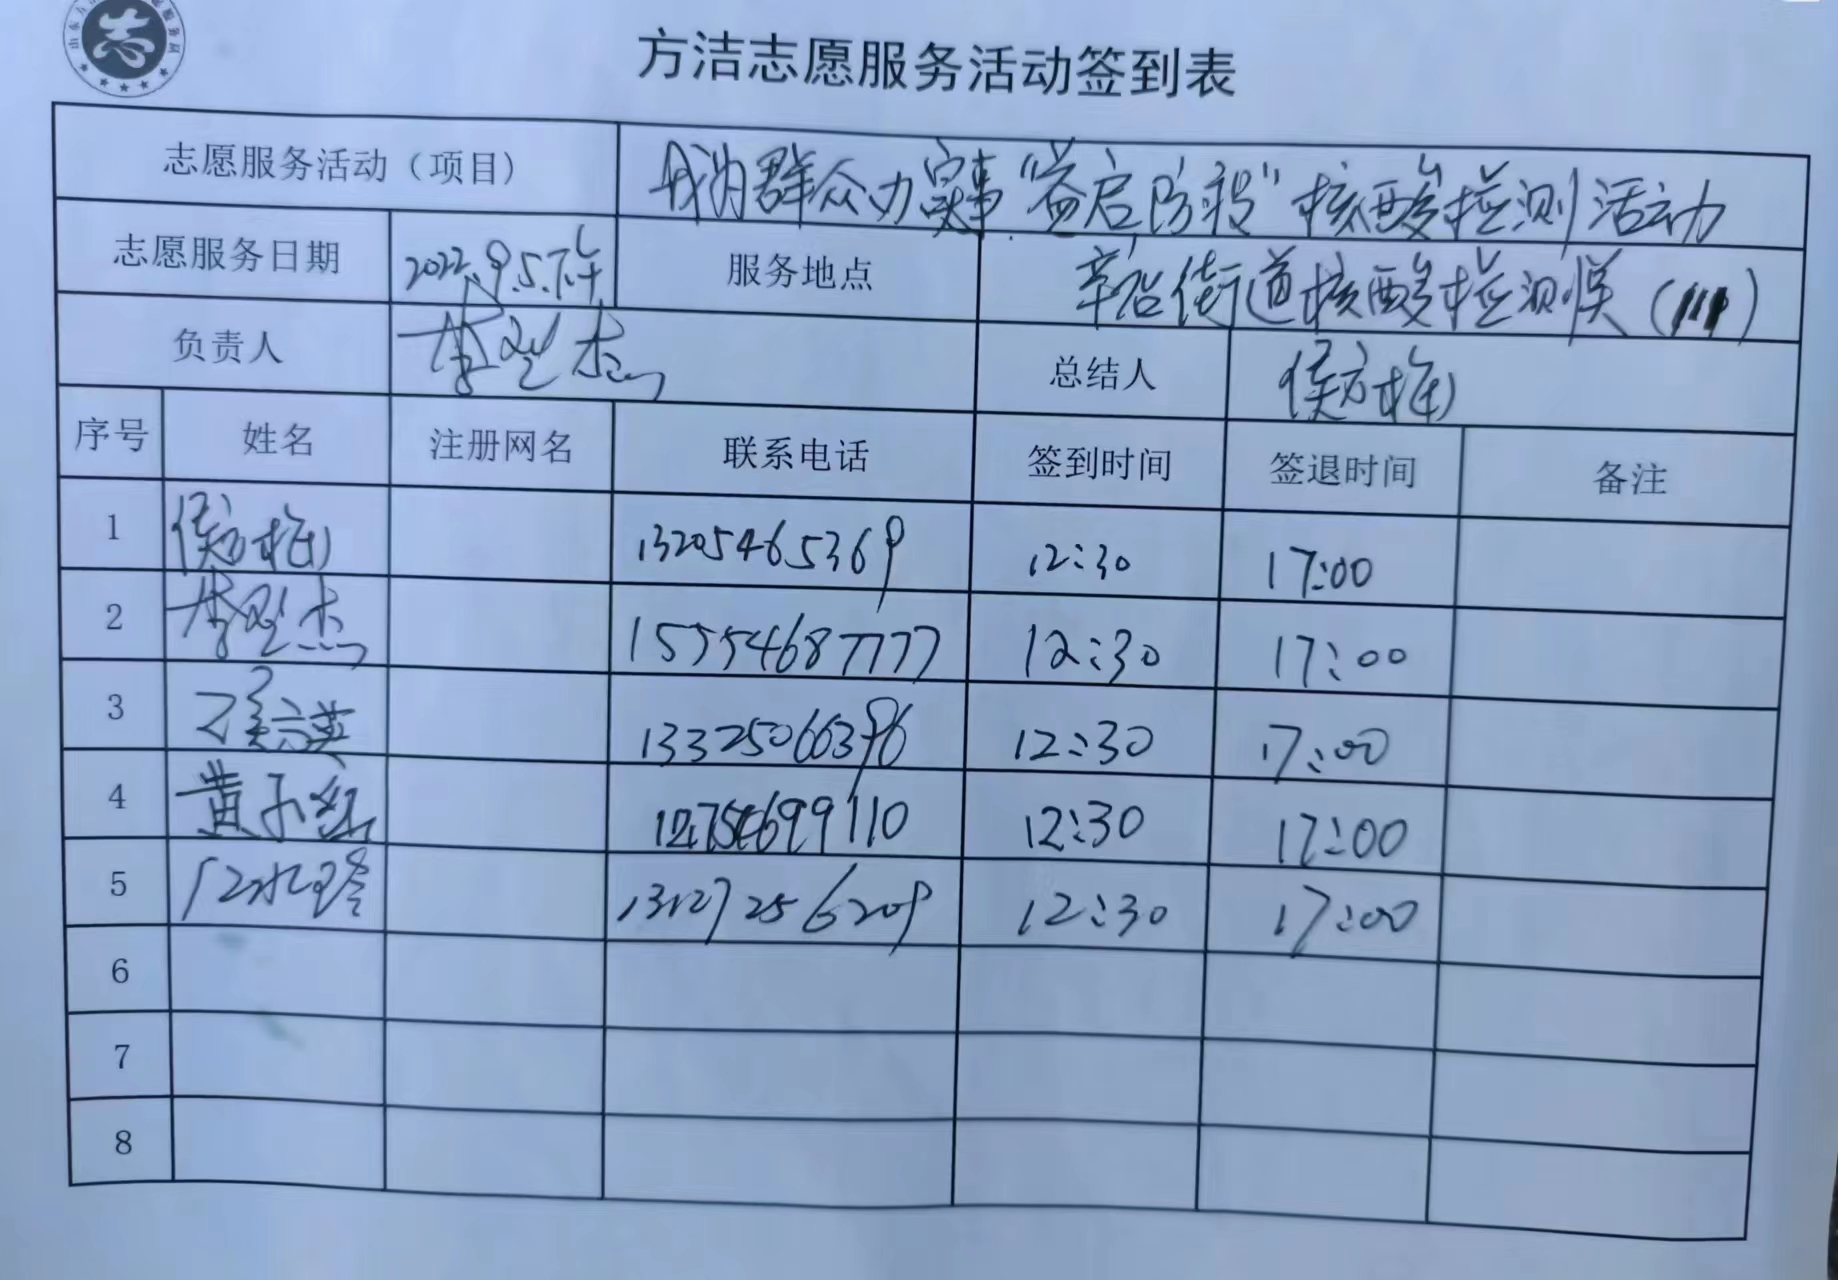 志
方洁志愿服务活动签到表
志愿服务活动（项目） 我为群众办实事"益启防疫"核酸检测活动
志愿服务日期 2022.9.5.下午 服务地点 辛店街道核酸检测点
负责人 李 杰 总结人 侯方梅
序号 姓名 注册网名 联系电话 签到时间 签退时间 备注
1 侯方梅 13205465369 12:30 17:00
2 李 杰 15554687777 12:30 17:00
3 英 13325066396 12:30 17:00
4 黄 红 12:30 17:00
5 12:30 17:00
6
7
8